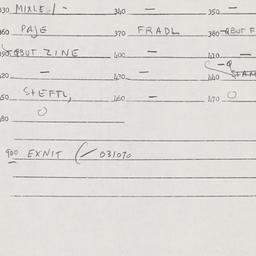 330 MIXLE / - 340 — 350 —
360 PAJE 370 FRADL 380 QBUT F
390 QBUT ZINE 400 — 410 —
420 — 430 — 440
450 SHEFTL, 460 — 470 O
480 O
900 EXNIT (/ 031070